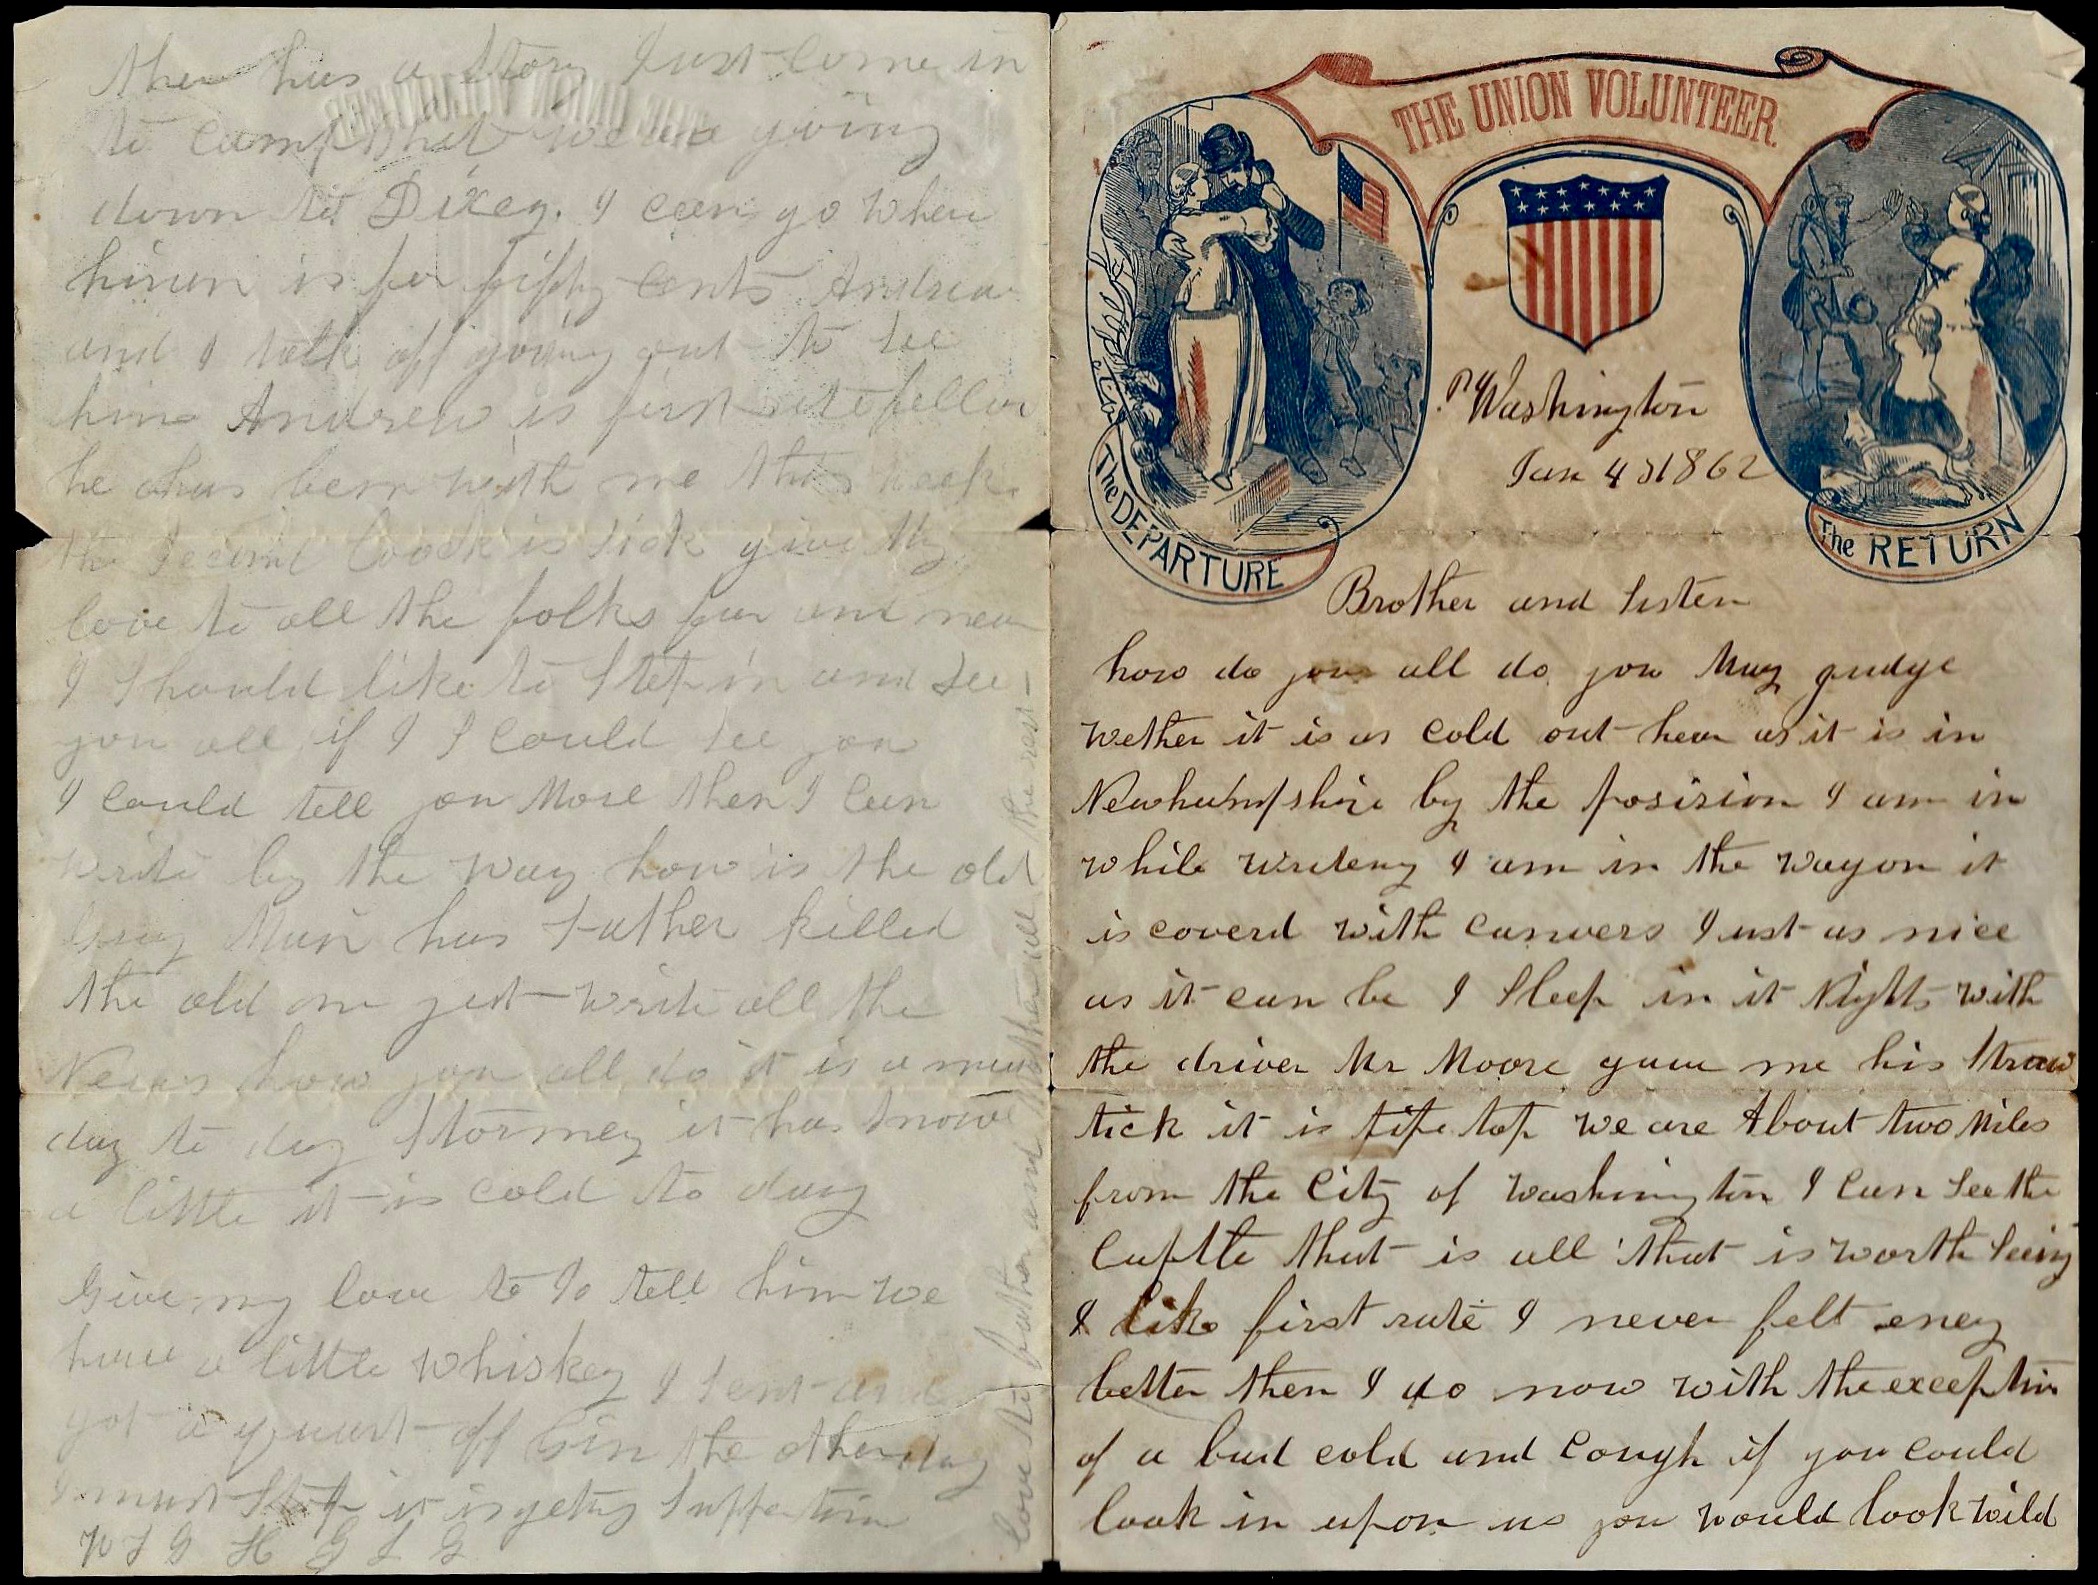 THE UNION VOLUNTEER.
The DEPARTURE
The RETURN
Washington
Jan 4 1862
Brother and Sister
how do you all do you May gudge
wether it is as cold out hear as it is in
Newhampshire by the posision I am in
while writeng I am in the wagon it
is coverd with canvers Just as nice
as it can be I Sleep in it Nights with
the driver Mr Moore gave me his Straw
tick it is tip top we are About two Miles
from the City of Washington I Can See the
Capitle that is all that is worth Seeing
I like first rate I never felt eney
better then I do now with the exception
of a bad cold and Cough if you Could
look in upon us you would look wild
ther has a Story Just Come in
to Camp that we are going
down to Dixey. I can go when
hiram is for fifty Cents Andrew
and I talk off going out to See
him Andrew is first rate fellow
he has been with me this week.
the Second Coock is Sick give My
love to all the folks far and near
I Should like to Step in and See
you all if I I Could See you
I Could tell you More then I Can
write by the way how is the old
Gray Man has Father killed
the old one yet write all the
News how you all do it is a
day to day Stormey it has Snowe
a little it is Cold to day
Give my love to Jo tell him we
have a little whiskey I Sent and
got a quart off Gin the other day
I must Stop it is geting Supper time
W S G H G L G
love to father and Mother all the rest